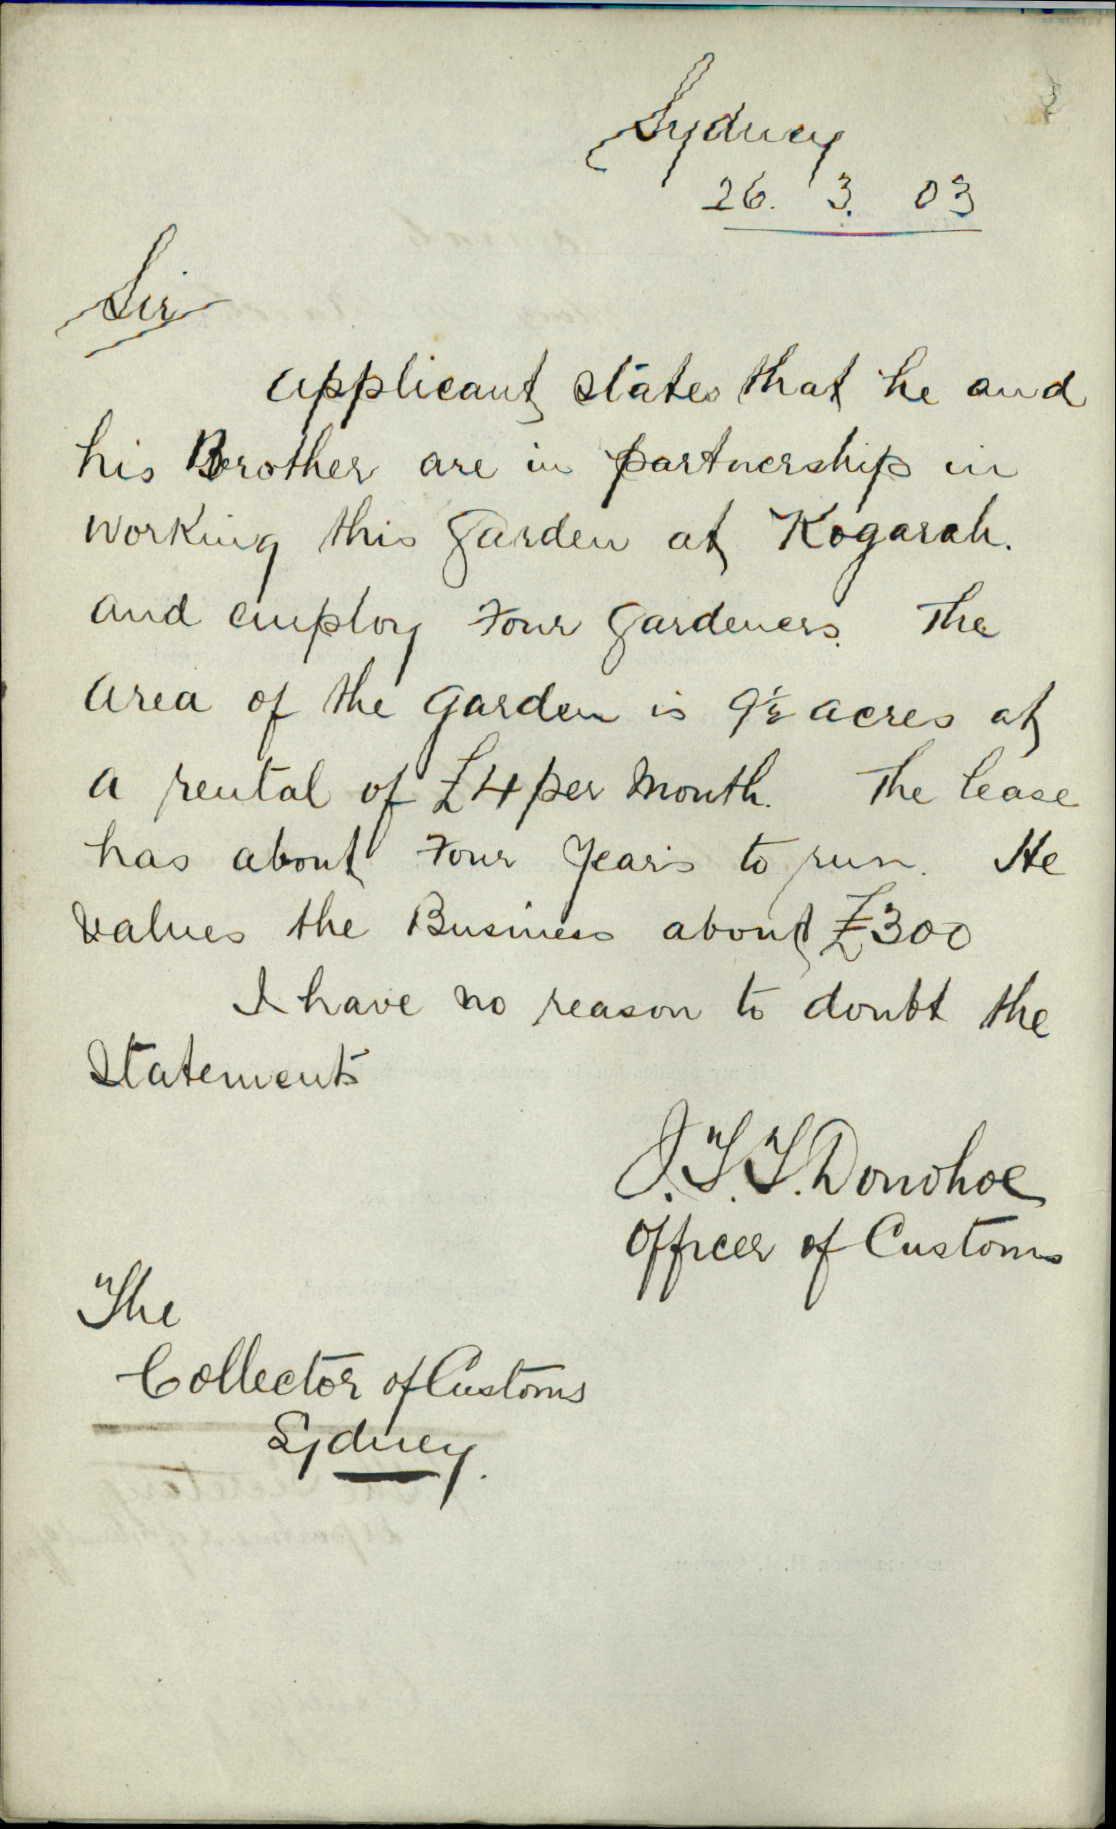 Sydney
26. 3. 03
Sir
Applicant states that he and
his Brother are in partnership in
working this Garden at Kogarah.
and employ Four Gardeners. The
area of the Garden is 9½ acres at
a rental of £4 per Month. The lease
has about Four Years to run. He
values the Business about £300
I have no reason to doubt the
Statements
J.T.T. Donohoe
Officer of Customs
The
Collector of Customs
Sydney.